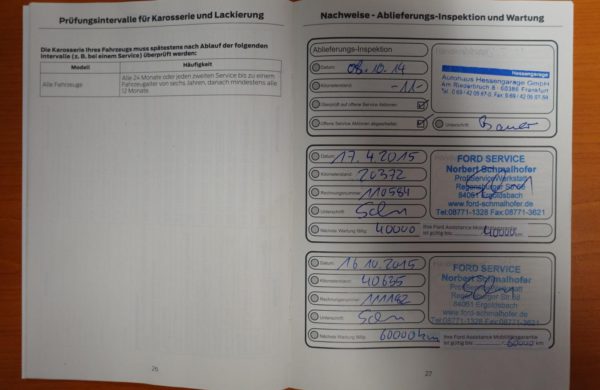 Prüfungsintervalle für Karosserie und Lackierung
Die Karosserie Ihres Fahrzeugs muss spätestens nach Ablauf der folgenden
Intervalle (z. B. bei einem Service) überprüft werden:
Modell Häufigkeit
Alle Fahrzeuge Alle 24 Monate oder jeden zweiten Service bis zu einem
Fahrzeugalter von sechs Jahren, danach mindestens alle
12 Monate.
26
Nachweise - Ablieferungs-Inspektion und Wartung
Ablieferungs-Inspektion
Datum: 08.10.14
Kilometerstand: -11-
Überprüft auf offene Service Aktionen:
Offene Service Aktionen abgearbeitet:
Hessengarage
Autohaus Hessengarage GmbH
Am Riederbruch 8 · 60386 Frankfurt
Unterschrift: Bauer
Datum: 17.4.2015
Kilometerstand: 20372
Rechnungsnummer: 110584
Unterschrift:
Nächste Wartung fällig: 40000
FORD SERVICE
Norbert Schmalhofer
Profi Service Werkstatt
Regensburger Str. 68
84061 Ergoldsbach
www.ford-schmalhofer.de
Tel:08771-1328 Fax:08771-3621
Ihre Ford Assistance Mobilitätsgarantie
ist gültig bis: 40000 km
Datum: 16.10.2015
Kilometerstand: 40635
Rechnungsnummer: 111182
Unterschrift:
Nächste Wartung fällig: 60000 km
FORD SERVICE
Norbert Schmalhofer
Profi Service Werkstatt
Regensburger Str. 68
84061 Ergoldsbach
www.ford-schmalhofer.de
Tel:08771-1328 Fax:08771-3621
Ihre Ford Assistance Mobilitätsgarantie
ist gültig bis: 60000 km
27